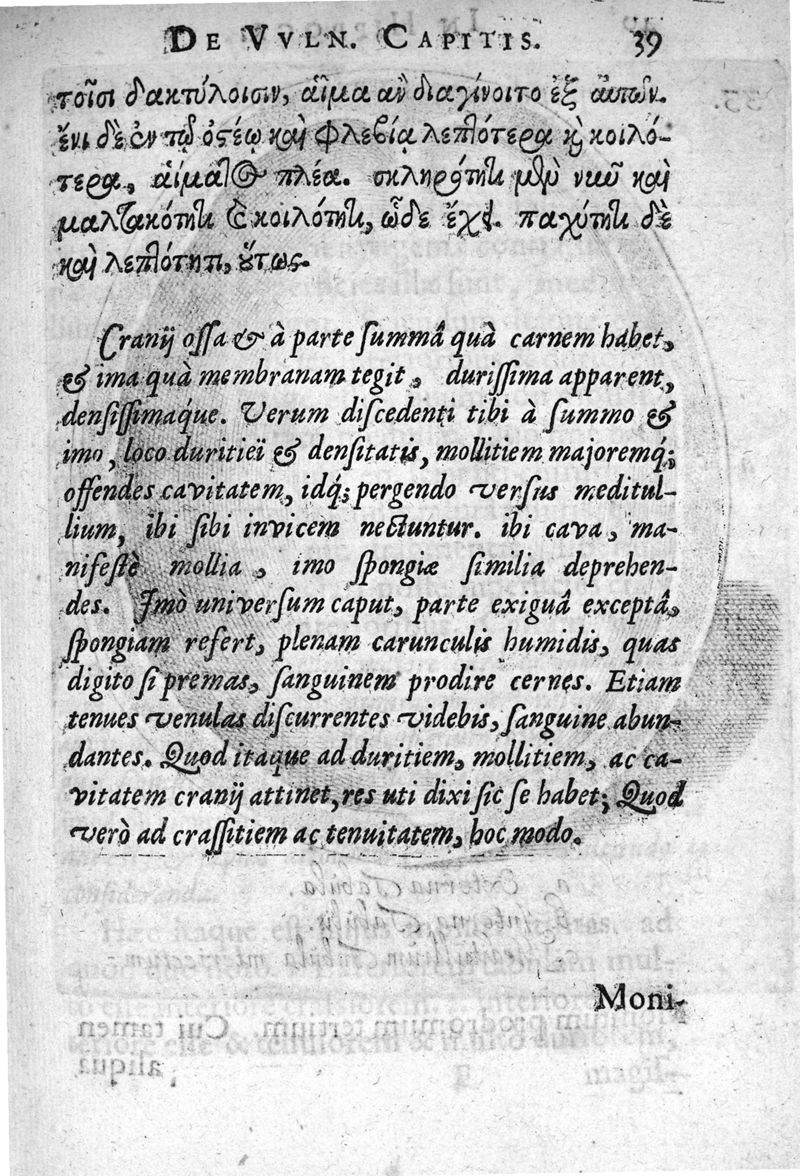 DE VVLN. CAPITIS. 39
τοῖσι δακτύλοισιν, αἷμα ἂν διαγίνοιτο ἐξ αὐτῶν.
ἔνι δὲ ἐν τῷ ὀστέῳ καὶ φλεβία λεπτότερα καὶ κοιλό-
τερα, αἵματος πλέα. σκληρότητι μὲν νυῦ καὶ
μαλθακότητι καὶ κοιλότητι, ὧδε ἔχει. παχύτητι δὲ
καὶ λεπτότητι, οὕτως.
Cranij ossa & à parte summâ quà carnem habet,
& ima quà membranam tegit, durissima apparent,
densissimaq́ue. Verum discedenti tibi à summo &
imo, loco duritieï & densitatis, mollitiem majoremq́;
offendes cavitatem, idq́; pergendo versus meditul-
lium, ibi sibi invicem nectuntur. ibi cava, ma-
nifestè mollia, imo spongiæ similia deprehen-
des. Imò universum caput, parte exiguâ exceptâ,
spongiam refert, plenam carunculis humidis, quas
digito si premas, sanguinem prodire cernes. Etiam
tenues venulas discurrentes videbis, sanguine abun-
dantes. Quod itaque ad duritiem, mollitiem, ac ca-
vitatem cranij attinet, res uti dixi sic se habet; Quod
verò ad crassitiem ac tenuitatem, hoc modo.
Moni-